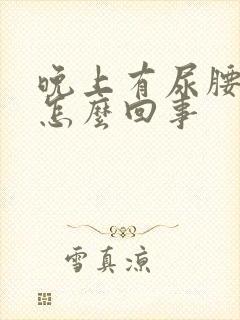 晚上有尿腰
怎麼回事
雪真涼